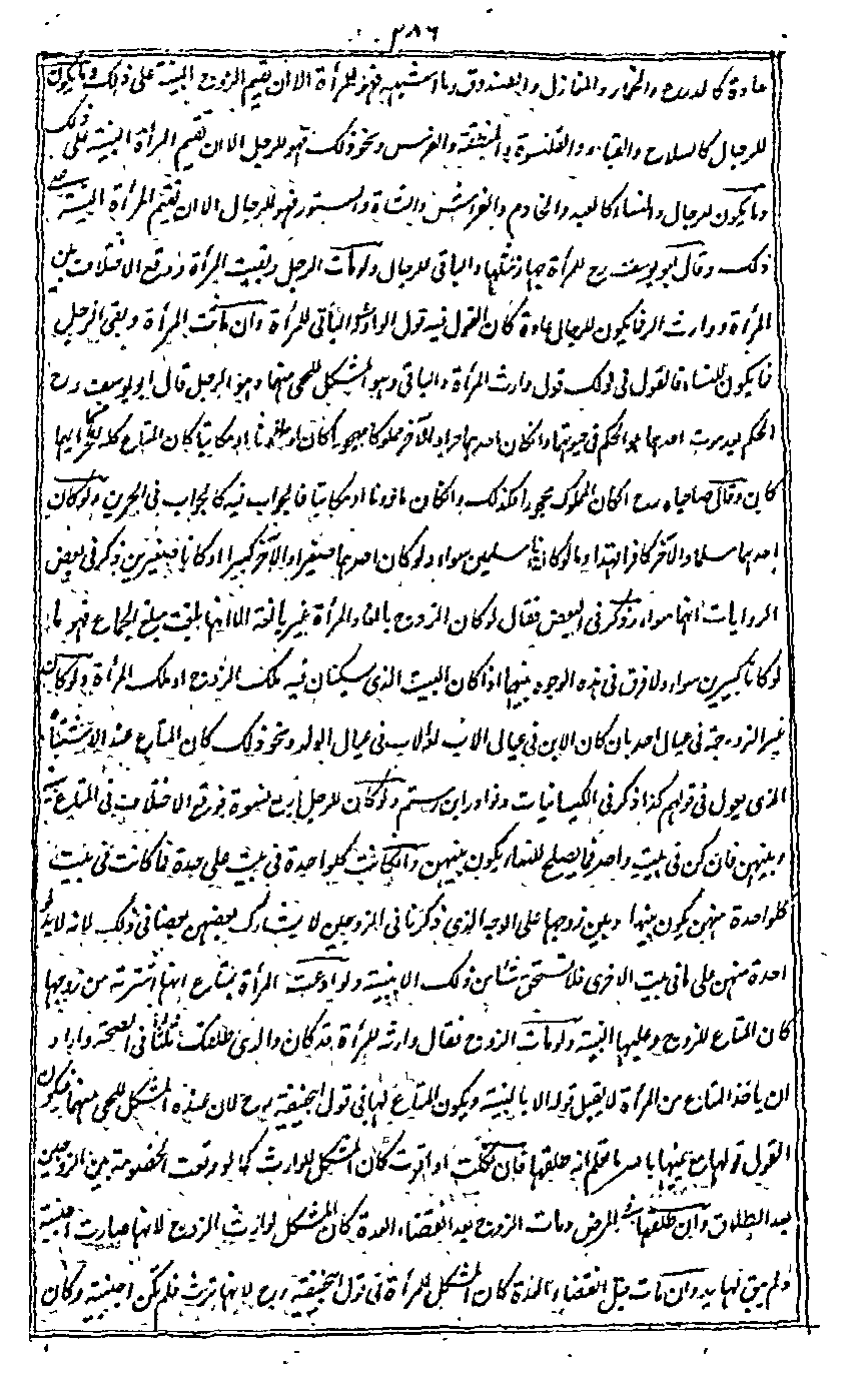 ٣٨٦
عادة كالدرع والخمار والمغازل والصندوق وما اشبهه فهو للمرأة الا ان تقيم الزوج البينة على ذلك وما يكون
للرجال كالسلاح والقباء والقلنسوة والمنطقة والفرس ونحو ذلك فهو للرجل الا ان تقيم المرأة البينة على ذلك
وما يكون للرجال والنساء كالعبد والخادم والفراش والشاة والستور فهو للرجال الا ان تقيم المرأة البينة على
ذلك وقال ابو يوسف رح للمرأة جهاز مثلها والباقي للرجال ولو مات الرجل وبقيت المرأة ووقع الاختلاف بين
المرأة ووارث الرجل فما يكون للرجال عادة كان القول فيه قول الوارث والباقي للمرأة وان ماتت المرأة وبقي الرجل
فما يكون للنساء فالقول في ذلك قول وارث المرأة والباقي وهو المشكل للحي منهما وهو الرجل قال ابو يوسف رح
الحكم بعد موت احدهما هو الحكم في حيوتهما وان كان احدهما حرا والآخر مملوكا محجورا كان او ماذونا او مكاتبا كان المتاع كله للحر ايهما
كان وقال صاحباه رح ان كان المملوك محجورا فكذلك وان كان ماذونا او مكاتبا فالجواب فيه كالجواب في الحرين ولو كان
احدهما مسلما والآخر كافرا فهذا وما لو كانا مسلمين سواء ولو كان احدهما صغيرا والآخر كبيرا او كانا صغيرين ذكر في بعض
الروايات انهما سواء وذكر في البعض فقال لو كان الزوج بالغا والمرأة غير بالغة الا انها بلغت مبلغ الجماع فهو وما
لو كانا كبيرين سواء ولا فرق في هذه الوجوه بينهما اذا كان البيت الذي يسكنان فيه ملك الزوج او ملك المرأة ولو كان
غير الزوجة في عيال احد بان كان الابن في عيال الاب او الاب في عيال الولد ونحو ذلك كان المتاع عند الاشتباه
للذي يعول في قولهم كذا ذكر في الكيسانيات ونوادر ابن رستم ولو كان للرجل اربع نسوة فوقع الاختلاف في المتاع بينه
وبينهن فان كن في بيت واحد فما يصلح للنساء يكون بينهن وان كانت كل واحدة في بيت على حدة فما كانت في بيت
كل واحدة منهن يكون بينها وبين زوجها على الوجه الذي ذكرنا في الزوجين لا يشارك بعضهن بعضا في ذلك لانه لا يد
احدة منهن على ما في بيت الاخرى فلا تستحق شيئا من ذلك الا ببينة ولو ادعت المرأة بمتاع انها اشترته من زوجها
كان المتاع للزوج وعليها البينة ولو مات الزوج فقال وارثه للمرأة قد كان والدي طلقك ثلثا في الصحة واراد
ان ياخذ المتاع من المرأة لا يقبل قوله الا بالبينة ويكون المتاع لها في قول ابي حنيفة رح لان عنده المشكل للحي منهما فيكون
القول قولها مع يمينها بالله ما تعلم انه طلقها فان نكلت او اقرت كان المشكل للوارث كما لو وقعت الخصومة بين الزوجين
بعد الطلاق وان طلقها في المرض ومات الزوج بعد انقضاء العدة كان المشكل لوارث الزوج لانها صارت اجنبية
ولم يبق لها يد وان مات قبل انقضاء العدة كان المشكل للمرأة في قول ابي حنيفة رح لانها ترث فلم تكن اجنبية وكان